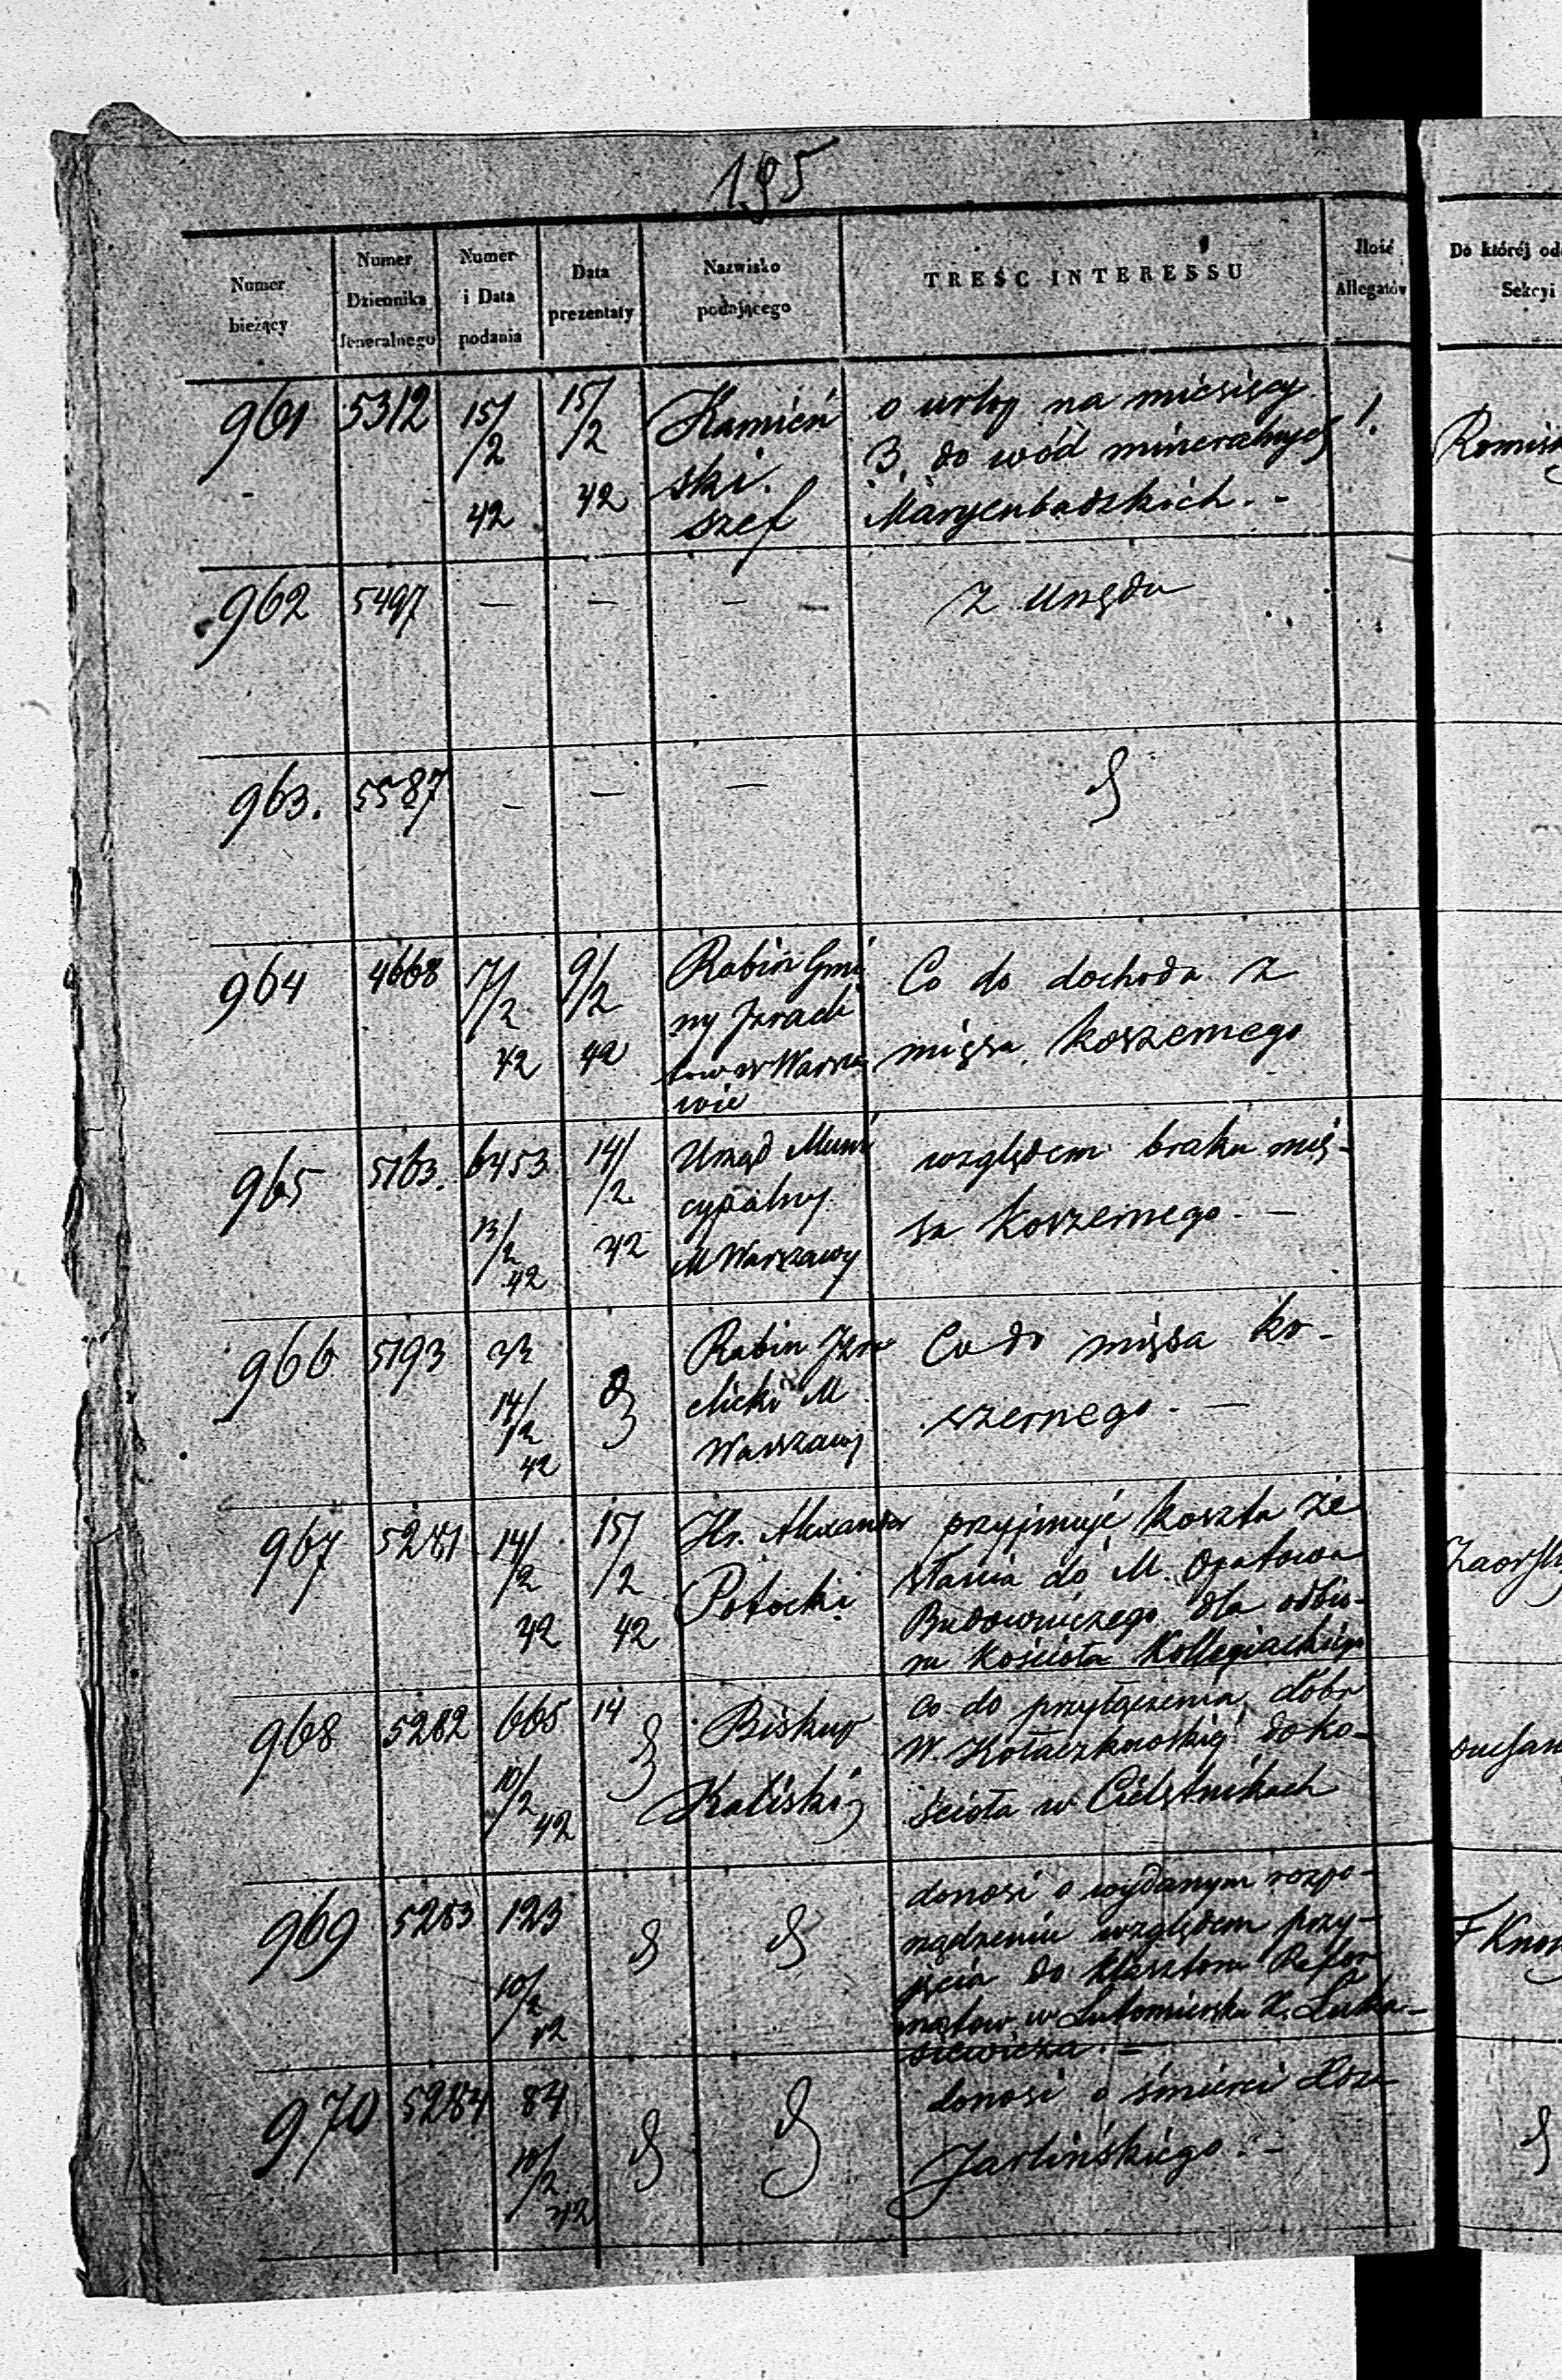 195
Numer bieżący
Numer Dziennika Jeneralnego
Numer i Data podania
Data prezentaty
Nazwisko podającego
TREŚĆ INTERESSU
Ilość Allegatów
Do której od
Sekcyi
961 5312 15/2 42 15/2 42 Kamień
ski.
szef
o urlop na miesięcy
3. do wód mineralnych
Maryenbadzkich. -
1.
962 5497 — — — Z Urzędu
963. 5587 — — — d
964 4668 7/2 42 9/2 42 Rabin Gmi
ny Izraeli
tow w Warsza
wie
Co do dochodu z
mięsa koszernego
965 5163. 6453 13/2 42 14/2 42 Urząd Muni
cypalny
M Warszawy
względem braku mię-
sa koszernego. —
966 5193 14/2 42 d Rabin Izra
elicki M
Warszawy
Co do mięsa ko-
szernego. —
967 5281 14/2 42 15/2 42 Hr. Alexander
Potocki
przyjmuje koszta ze
słania do M. Opatowa
Budowniczego dla odbio-
ru Kościoła Kollegiackiego
968 5282 665 10/2 42 14 d Biskup
Kaliski
co do przyłączenia dóbr
W. Kołaczkowskiej do ko-
ścioła w Cielętnikach
969 5283 123 10/2 42 d d donosi o wydanym rozpo-
rządzeniu względem przy-
jęcia do klasztoru Refor
matow w Lutomiersku X. Łuka-
siewicza. —
970 5284 84 10/2 42 d d donosi o śmierci
Jarlińskiego. -
d